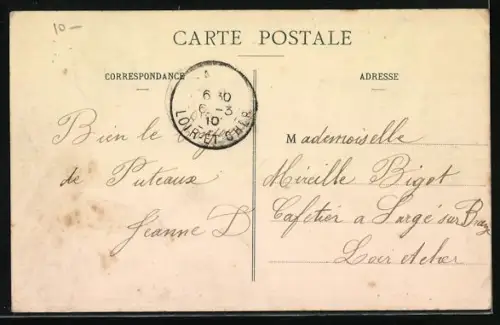 10—
CARTE POSTALE
CORRESPONDANCE
ADRESSE
6 30
6 -3
10
LOIR-ET-CHER
Bien le
de Puteaux
Jeanne D
Mademoiselle
Mireille Bigot
Cafetier a Sargé sur Braye
Loir et cher